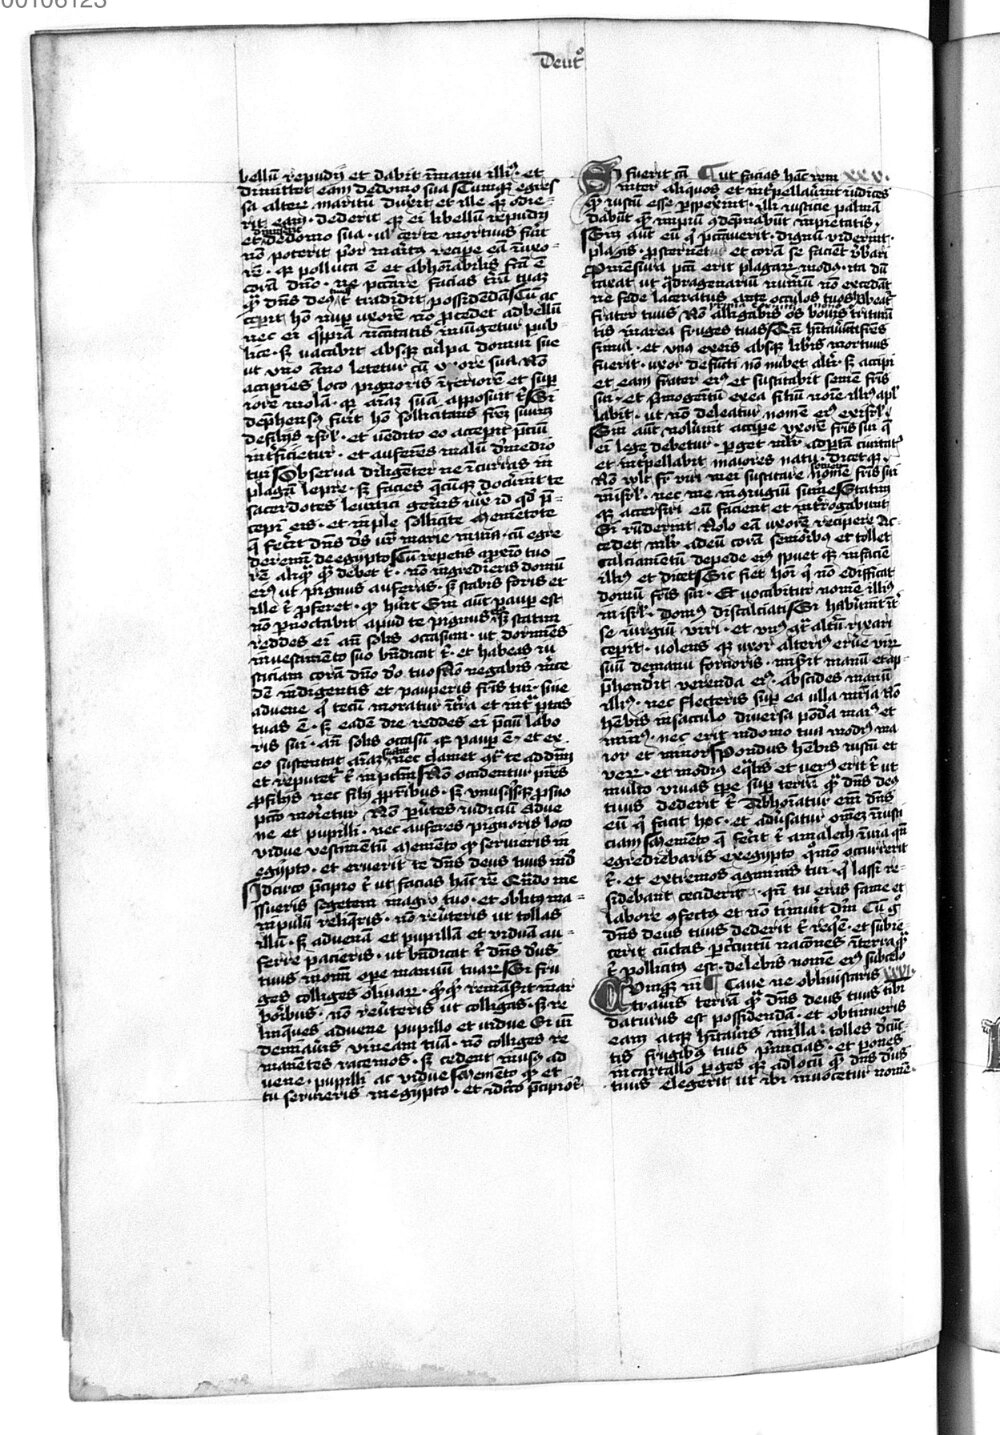 00106123
Deutº
bellū repudij et dabit ī manu illiꝰ · et
dimittet eam de domo sua Cumqꝫ egres
sa alteꝝ maritū duxit et ille qꝫ odie-
rit eam · dederit qꝫ ei libellū repudij
et dimiserit de domo sua · ul certe mortuus fuit
nō poterit p̄or marita recipe eā ī uxo-
rē · qꝫ polluta ē et abhoīabilis fc̄a ē
corā dn̄o · ne pccāre facias t̄rā tuaꝫ
qꝫ dn̄s deꝰ tuus t̄ tradidit possidēdā Cū ac
ceperit hō nup uxorē nō p̄cedet ad bellū
nec ei qp̄iā nc̄citatis iniūgetur pub
lice · sꝫ vacabit absqꝫ culpa domui sue
ut uno āno letetur cū uxore sua Nō
accipies loco pignoris īferiorē et supi
iorē molā · qꝫ aīaꝫ suā apposuit t̄ Si
dep̄hensꝰ fuit hō sollicitans frēꝫ suum
de filijs isrl̄ · et uēdito eo accepit p̄ciū
int̄ficietur · et auferes malū de medio
tui Observa diligēter ne īcurras in
plagā lepre · sꝫ facies qcūqꝫ docūint te
sacerdotes leuitici gen̄is iux̄ id qd̄ p̄-
cepi eis · et īmple sollicite Mementote
q̄ fec̄it dn̄s ds̄ ur̄ marie in uia · cū egre
deremī de egypto Cū repetis a pxīo tuo
rē aliqꝫ qꝫ debet t̄ · nō ingredieris domū
eiꝰ ut pignus auferas · sꝫ stabis foris et
ille t̄ p̄feret · qꝫ hūit Sin aūt paup est
nō pnoctabit apud te pignus sꝫ statim
reddes ei añ solis occasum · ut dormiēs
in vestimēto suo bn̄dicat t̄ · et habeas iu
sticiam corā dn̄o dō tuo Nō negabis m̄ce
dē indigentis et pauperis fris̄ tui · siue
aduene · q̄ tecū moratur ī t̄ra et int̄ p̄tas
tuas ē · sꝫ eadē die reddes ei p̄ciū labo
ris sui · añ solis occasū qꝫ paup ē · et ex
eo sustentat aīaꝫ suam nec clamet ꝯtr̄ te ad dn̄m
et reputet̄ t̄ in pctm̄ Nō occidentur p̄res
p filijs nec filij p p̄ribus · sꝫ unusqꝫ p suo
pctō moret̄ur Nō puertes iudiciū adue
ne et pupilli · nec auferes pignoris loco
vidue vestimētū Memento qꝫ seruieris in
egypto · et eruerit te dn̄s deus tuus inde
Idcirco p̄cipio t̄ ut facias hāc rē Qn̄do me
ssueris segetem in agro tuo · et oblitꝰ ma-
nipulū reliq̄ris · nō reu̅teris ut tollas
illū · sꝫ aduenā et pupillā et viduā au-
ferre pacieris · ut bn̄dicat t̄ dn̄s deus
tuus in om̄i ope manuū tuaꝝ Si fru
ges colliges oliuaꝝ · qꝫqꝫ remāserit in ar
boribus · nō reu̅teris ut colligas · sꝫ re
linques aduene pupillo et uidue Si uī
demiaueris uineam tuā · nō colliges re
manētes racemos · sꝫ cedent in usꝰ ad
uene · pupilli ac vidue Memēto qꝫ et
tu seruieris in egypto · et idcir̄co p̄cipio t̄
Si fuerit cā ¶ ut facias hāc rem xxv.
inter aliquos et int̄pellauerint iudices
qꝫ iustū esse pspexint · illi iusticie palmā
dabūt qꝫ impiū ꝯdēpnabūt impietatis ·
Sin aūt eū q̄ pccauerit · dignū viderint ·
plagis · psternēt et corā se faciēt v̄berari
P mēsura pcti erit plagaꝝ modꝰ · ita dū
taxat ut q̄dragenariū numerū nō excedāt
ne fede laceratus ante oculos tuos abeat
frater tuus Nō alligabis os bouis triturā
tis in area fruges tuas Qn̄ hītauerint fr̄es
simul · et unꝰ ex eis absqꝫ libīs mortuus
fuerit · uxor defuncti nō nubet alt̄i · sꝫ accipi
et eam frater eiꝰ · et suscitabit semē fris̄
sui · et pmogēitū ex ea filiū noīe illiꝰ apl̄
labit · ut nō deleatur nomē eiꝰ ex isrl̄
Sin aūt noluerit accipe uxorē fris̄ sui q̄
ei lege debetur · pget ml̄r ad portā ciuitatꝭ
et int̄pellabit maiores natu · dicet qꝫ ·
Nō vlt fr̄ viri mei suscitare nomē fris̄ sui
in isrl̄ · nec me in ꝯiugiū sumē Statim
qꝫ accersiri eū facient et int̄rogabunt
Si rn̄derit Nolo eā uxorē recipere Ac-
cedet ml̄r ad eū corā senioribꝰ et tollet
calciamētū de pede eiꝰ spuet qꝫ in faciē
illiꝰ et dicet Sic fiet hoī q̄ nō edificat
domū fris̄ sui · Et uocabitur nomē illiꝰ
in isrl̄ · Domꝰ discalciati Si habueint īt̄
se iurgiū viri · et unꝰ ꝯt̄ altū rixari
ceperit · uolens qꝫ uxor alteriꝰ eruē virū
suū de manu fortioris · miserit manū et ap-
p̄henderit verenda eiꝰ · abscides manū
illiꝰ · nec flecteris sup ea ulla mīa Nō
hēbis in sacculo diuersa pōda maiꝰ et
minꝰ · nec erit in domo tua modiꝰ ma
ior et minor Pondus hēbis iustū et
verū · et modiꝰ eq̄lis et verꝰ erit t̄ ut
multo viuas tpe sup terrā qꝫ dn̄s deꝰ
tuus dederit t̄ Abhoīatur eīm dn̄s
eū q̄ facit hec · et aduersatur om̄eꝫ iniusti
ciam Memēto q̄ fec̄it t̄ amalech ī uia qn̄
egrediebaris ex egypto quō occurrerit
t̄ · et extremos agminis tui · q̄ lassi re-
sidebant ceciderit · qn̄ tu eras fame et
labore ꝯfectꝰ et nō timuit dm̄ Cū ḡ
dn̄s deus tuus dederit t̄ reqē · et subie
cerit cūctas p circuitū nac̄ones ī terra qꝫ
t̄ pollicitꝰ est · delebis nomē eiꝰ sub celo
Cumqꝫ in ¶ Caue ne obliuiscaris xxvi.
traueris terrā qꝫ dn̄s deus tuus tibi
daturus est possidendā · et obtinueris
eam atqꝫ hītaueris in illa · tolles de cūc
tis frugibꝰ tuis p̄micias · et pones
in cartallo pges qꝫ ad locū qꝫ dn̄s deus
tuus elegerit ut ibi inuocetur nomē